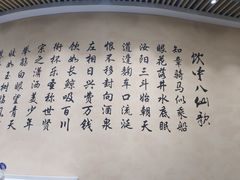 饮中八仙歌
知章骑马似乘船
眼花落井水底眠
汝阳三斗始朝天
道逢麹车口流涎
恨不移封向酒泉
左相日兴费万钱
饮如长鲸吸百川
衔杯乐圣称世贤
宗之潇洒美少年
举觞白眼望青天
皎如玉树临风